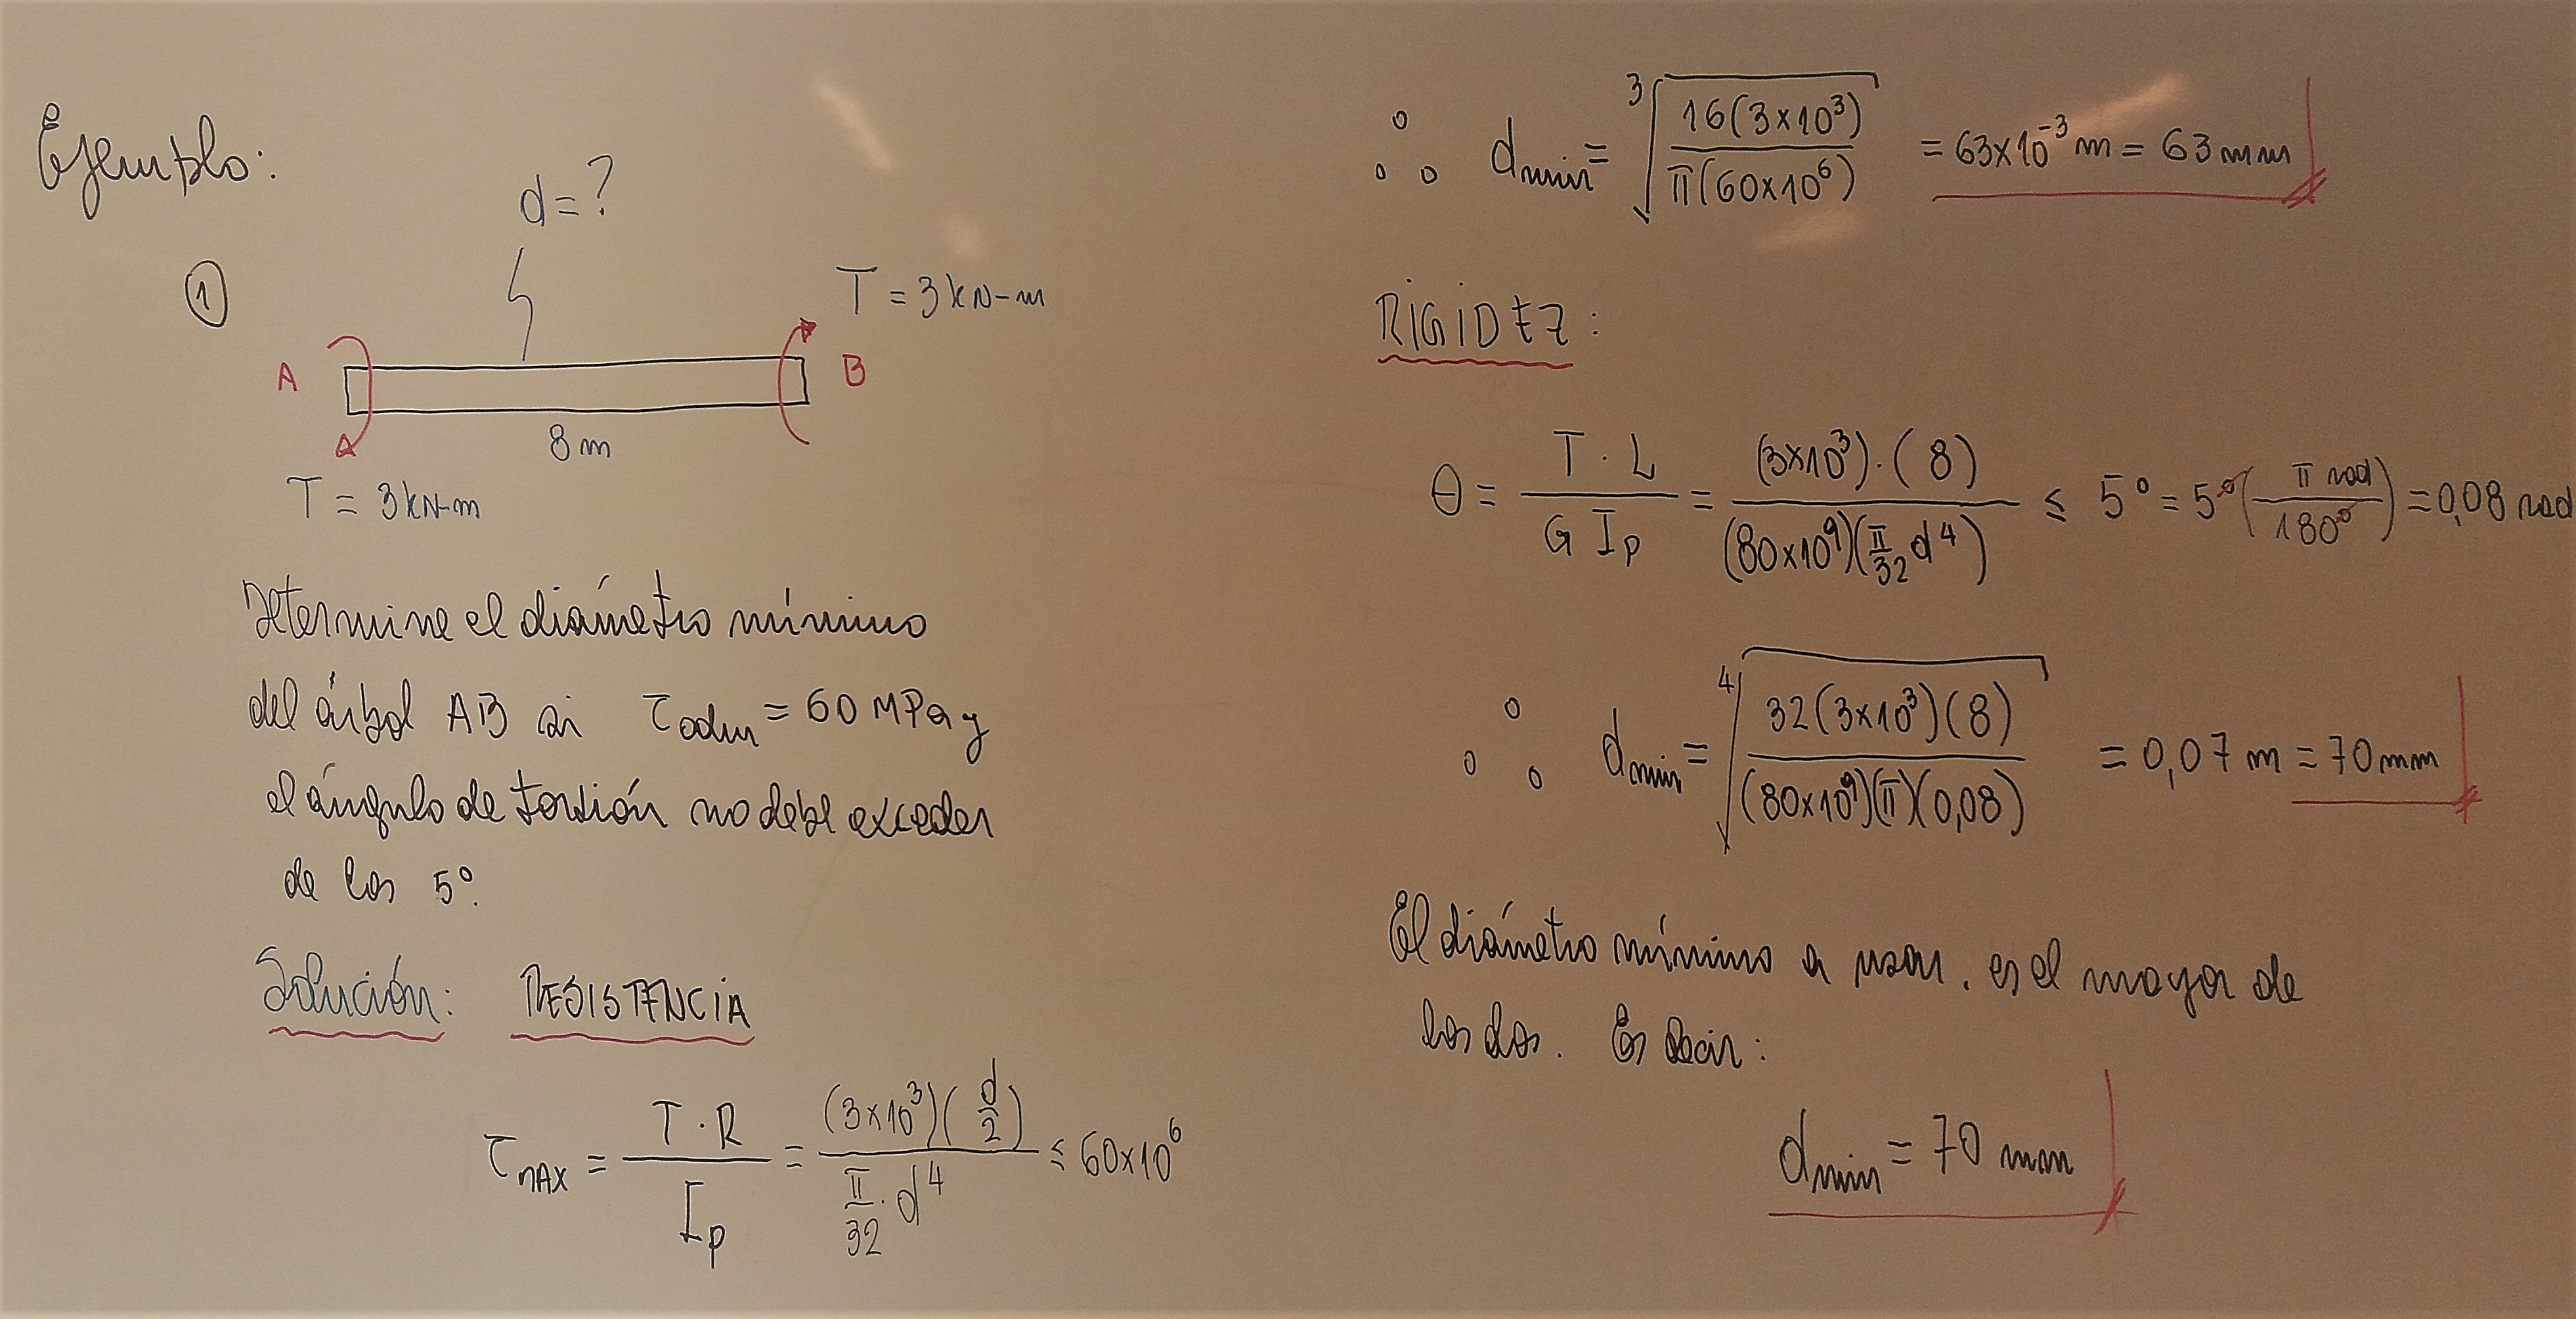 Ejemplo:
d=?
1
T = 3 kN-m
A
B
8 m
T = 3 kN-m
Determine el diámetro mínimo
del árbol AB si τadm = 60 MPa y
el ángulo de torsión no debe exceder
de los 5°.
Solución: RESISTENCIA
τMAX = T·R / Ip = (3x10³)(d/2) / (π/32 · d⁴) ≤ 60x10⁶
∴ dmin = ³√(16(3x10³) / π(60x10⁶)) = 63x10⁻³ m = 63 mm
RIGIDEZ:
θ = T·L / G Ip = (3x10³)·(8) / (80x10⁹)(π/32 d⁴) ≤ 5° = 5°(π rad / 180°) = 0,08 rad
∴ dmin = ⁴√(32(3x10³)(8) / (80x10⁹)(π)(0,08)) = 0,07 m = 70 mm
El diámetro mínimo a usar. es el mayor de
los dos. Es decir:
dmin = 70 mm